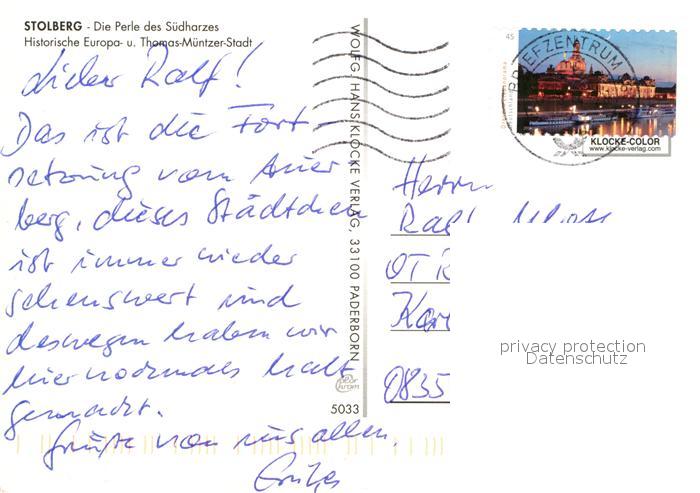 STOLBERG - Die Perle des Südharzes
Historische Europa- u. Thomas-Müntzer-Stadt
Lieber Ralf!
Das ist die Fort-
setzung vom Auer-
berg, dieses Städtchen
ist immer wieder
sehenswert und
deswegen haben wir
hier nochmals halt
gemacht.
Grüße von uns allen.
WOLFG. HANS KLOCKE VERLAG, 33100 PADERBORN
5033
45
BRIEFZENTRUM
KLOCKE-COLOR
www.klocke-verlag.com
Herrn
Ralf
OT
0835
privacy protection
Datenschutz